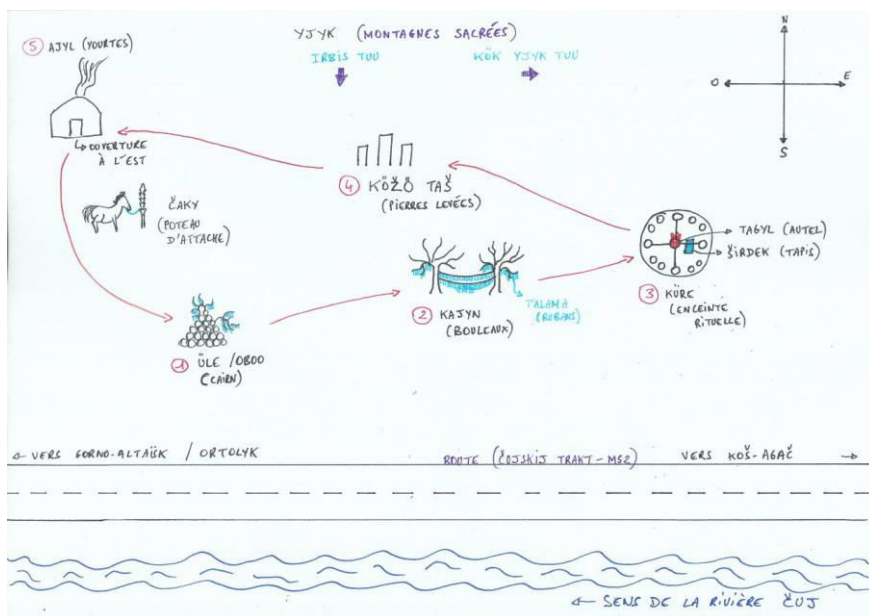 YJYK (MONTAGNES SACRÉES)
IRBIS TUU
KÖK YJYK TUU
N
O
E
S
5 AJYL (YOURTES)
OUVERTURE
À L'EST
ČAKY
(POTEAU
D'ATTACHE)
4 KÖŽÖ TAŠ
(PIERRES LEVÉES)
TAGYL (AUTEL)
ŠIRDEK (TAPIS)
3 KÜRE
(ENCEINTE
RITUELLE)
2 KAJYN
(BOULEAUX)
TALAMA
(RUBANS)
1 ÜLE / OBOO
(CAIRN)
VERS GORNO-ALTAÏSK / ORTOLYK
ROUTE (ČUJSKIJ TRAKT-M52)
VERS KOŠ-AGAČ
SENS DE LA RIVIÈRE ČUJ